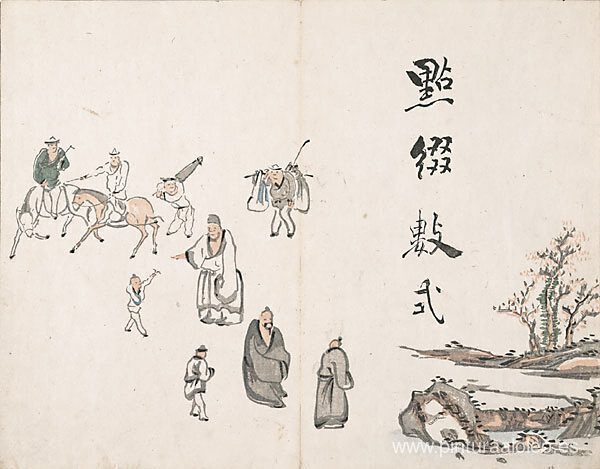 點綴數式
www.pinturaaloleo.es